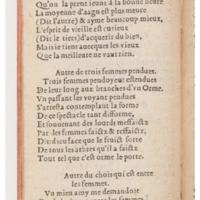 Qu'on la prent ieune à la bonne heure
La moyenne d'aage est plus meure
(Dit l'autre) & ayme beaucoup mieux,
L'esprit de vieille est curieux
(Dit le tiers) d'acquerir du bien,
Mais ie tiens auecques les vieux
Que la meilleure ne vaut rien.
Autre de trois femmes pendues.
Trois femmes pendoyent estendues
De leur long aux branches d'vn Orme.
Vn passant les voyant pendues
S'arresta contemplant la forme
De ce spectacle tant difforme,
Et souuenant des lourds meffaicts
Par les femmes faicts & reffaicts,
Dit pleust que le fruict sorte
De tous les arbres qu'il a faict
Tout tel que c'est orme le porte.
Autre du chois qui est entre
les femmes.
Vn mien amy me demandoit